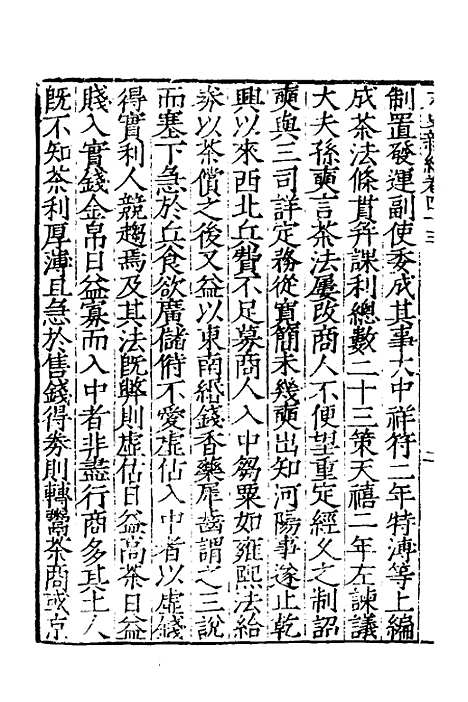 制置發運副使委成其事大中祥符二年特溥等上編
成茶法條貫并課利總數二十三策天禧二年左諫議
大夫孫奭言茶法屢改商人不便望重定經久之制詔
奭與三司詳定務從寬簡未幾奭出知河陽事遂止乾
興以來西北兵費不足募商人入中芻粟如雍熙法給
券以茶償之後又益以東南緡錢香藥犀齒謂之三說
而塞下急於兵食欲廣儲偫不愛虛估入中者以虛錢
得實利人競趨焉及其法既弊則虛估日益高茶日益
賤入實錢金帛日益寡而入中者非盡行商多其土人
既不知茶利厚薄且急於售錢得券則轉鬻茶商或京